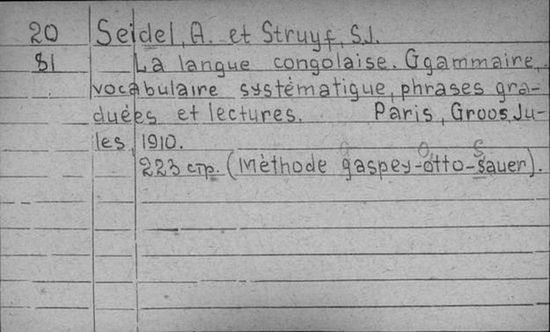 20 Seidel, A. et Struyf, S.J.
81 La langue congolaise. Ggammaire,
vocabulaire systématique, phrases gra-
duées et lectures. Paris, Groos, Ju-
les, 1910.
223 стр. (Méthode gaspey-otto-sauer).